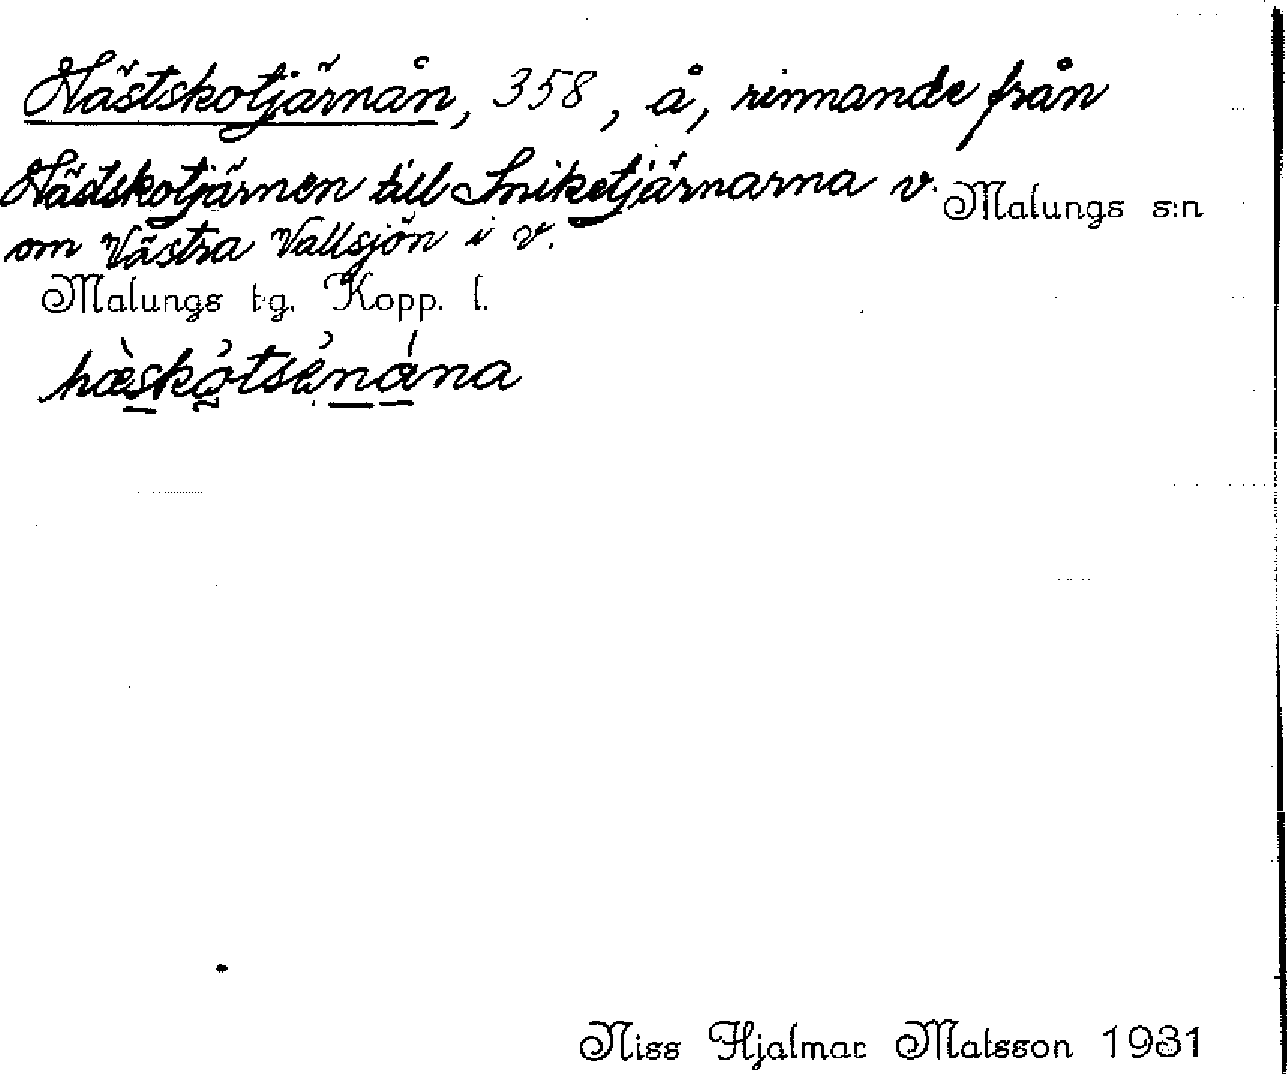 Hästskotjärnån, 358, å, rinnande från
Hästskotjärnen till Sniketjärnarna v. Malungs s:n
om Västra Vallsjön i v.
Malungs tg. Kopp. l.
Niss Hjalmar Matsson 1931